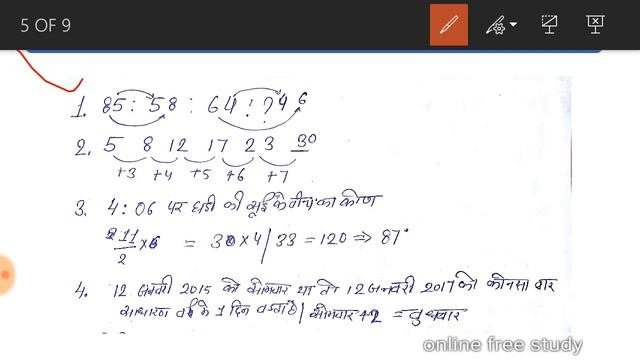 5 OF 9
1. 85 : 58 : 64 : ? 46
2. 5 8 12 17 23 30
+3 +4 +5 +6 +7
3. 4:06 पर घडी की सूई के बीच का कोण
11/2 × 6 = 30 × 4 / 33 = 120 ⇒ 87°
4. 12 जनवरी 2015 को सोमवार था तो 12 जनवरी 2017 को कौनसा वार
साधारण वर्ष मे 1 दिन बढता है / सोमवार +2 = बुधवार
online free study